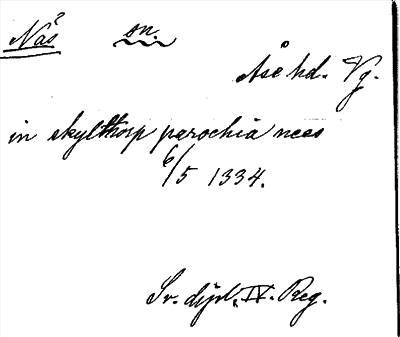 Näs sn.
Åse hd. Vg.
in skylthorp parochia nees
6/5 1334.
Sv. dipl. IV. Reg.